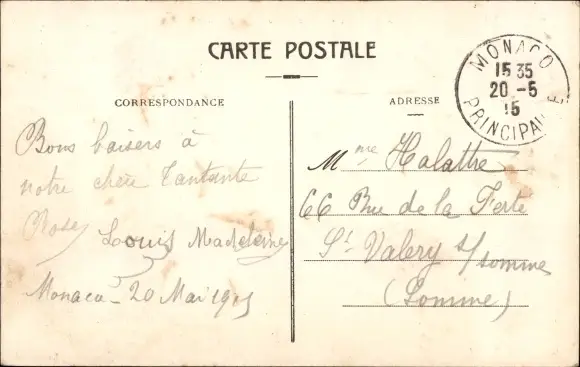 CARTE POSTALE
CORRESPONDANCE
Bons baisers à
notre chère Tantante
Rose
Louis Madeleine
Monaco - 20 Mai 1915
ADRESSE
MONACO
15 35
20 - 5
15
PRINCIPAUTE
Mme Halattre
66 Rue de la Ferté
St Valery s/somme
(Somme)